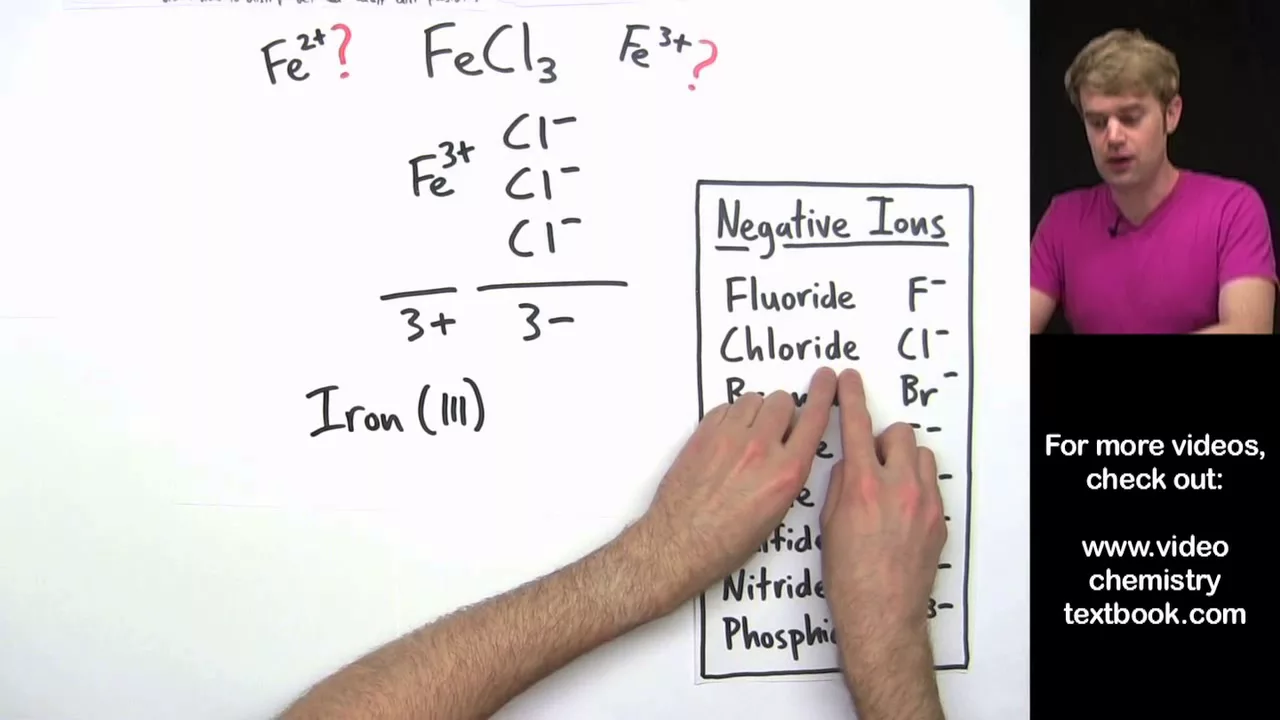 Fe²⁺? FeCl₃ Fe³⁺?
Cl⁻
Fe³⁺ Cl⁻
Cl⁻
3+ 3−
Iron (III)
Negative Ions
Fluoride F⁻
Chloride Cl⁻
Br⁻
Nitride
3−
For more videos,
check out:
www.video
chemistry
textbook.com